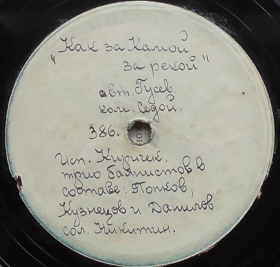 "Как за Камой
за рекой"
авт. Гусев
ком. Седой.
386.
Исп. Киргек.
трио баянистов в
составе: Попков,
Кузнецов и Данилов
сол. Никитин.